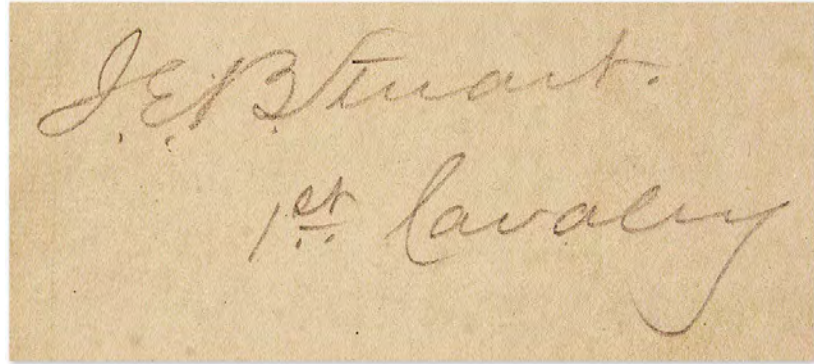 J.E.B Stuart.
1st. Cavalry